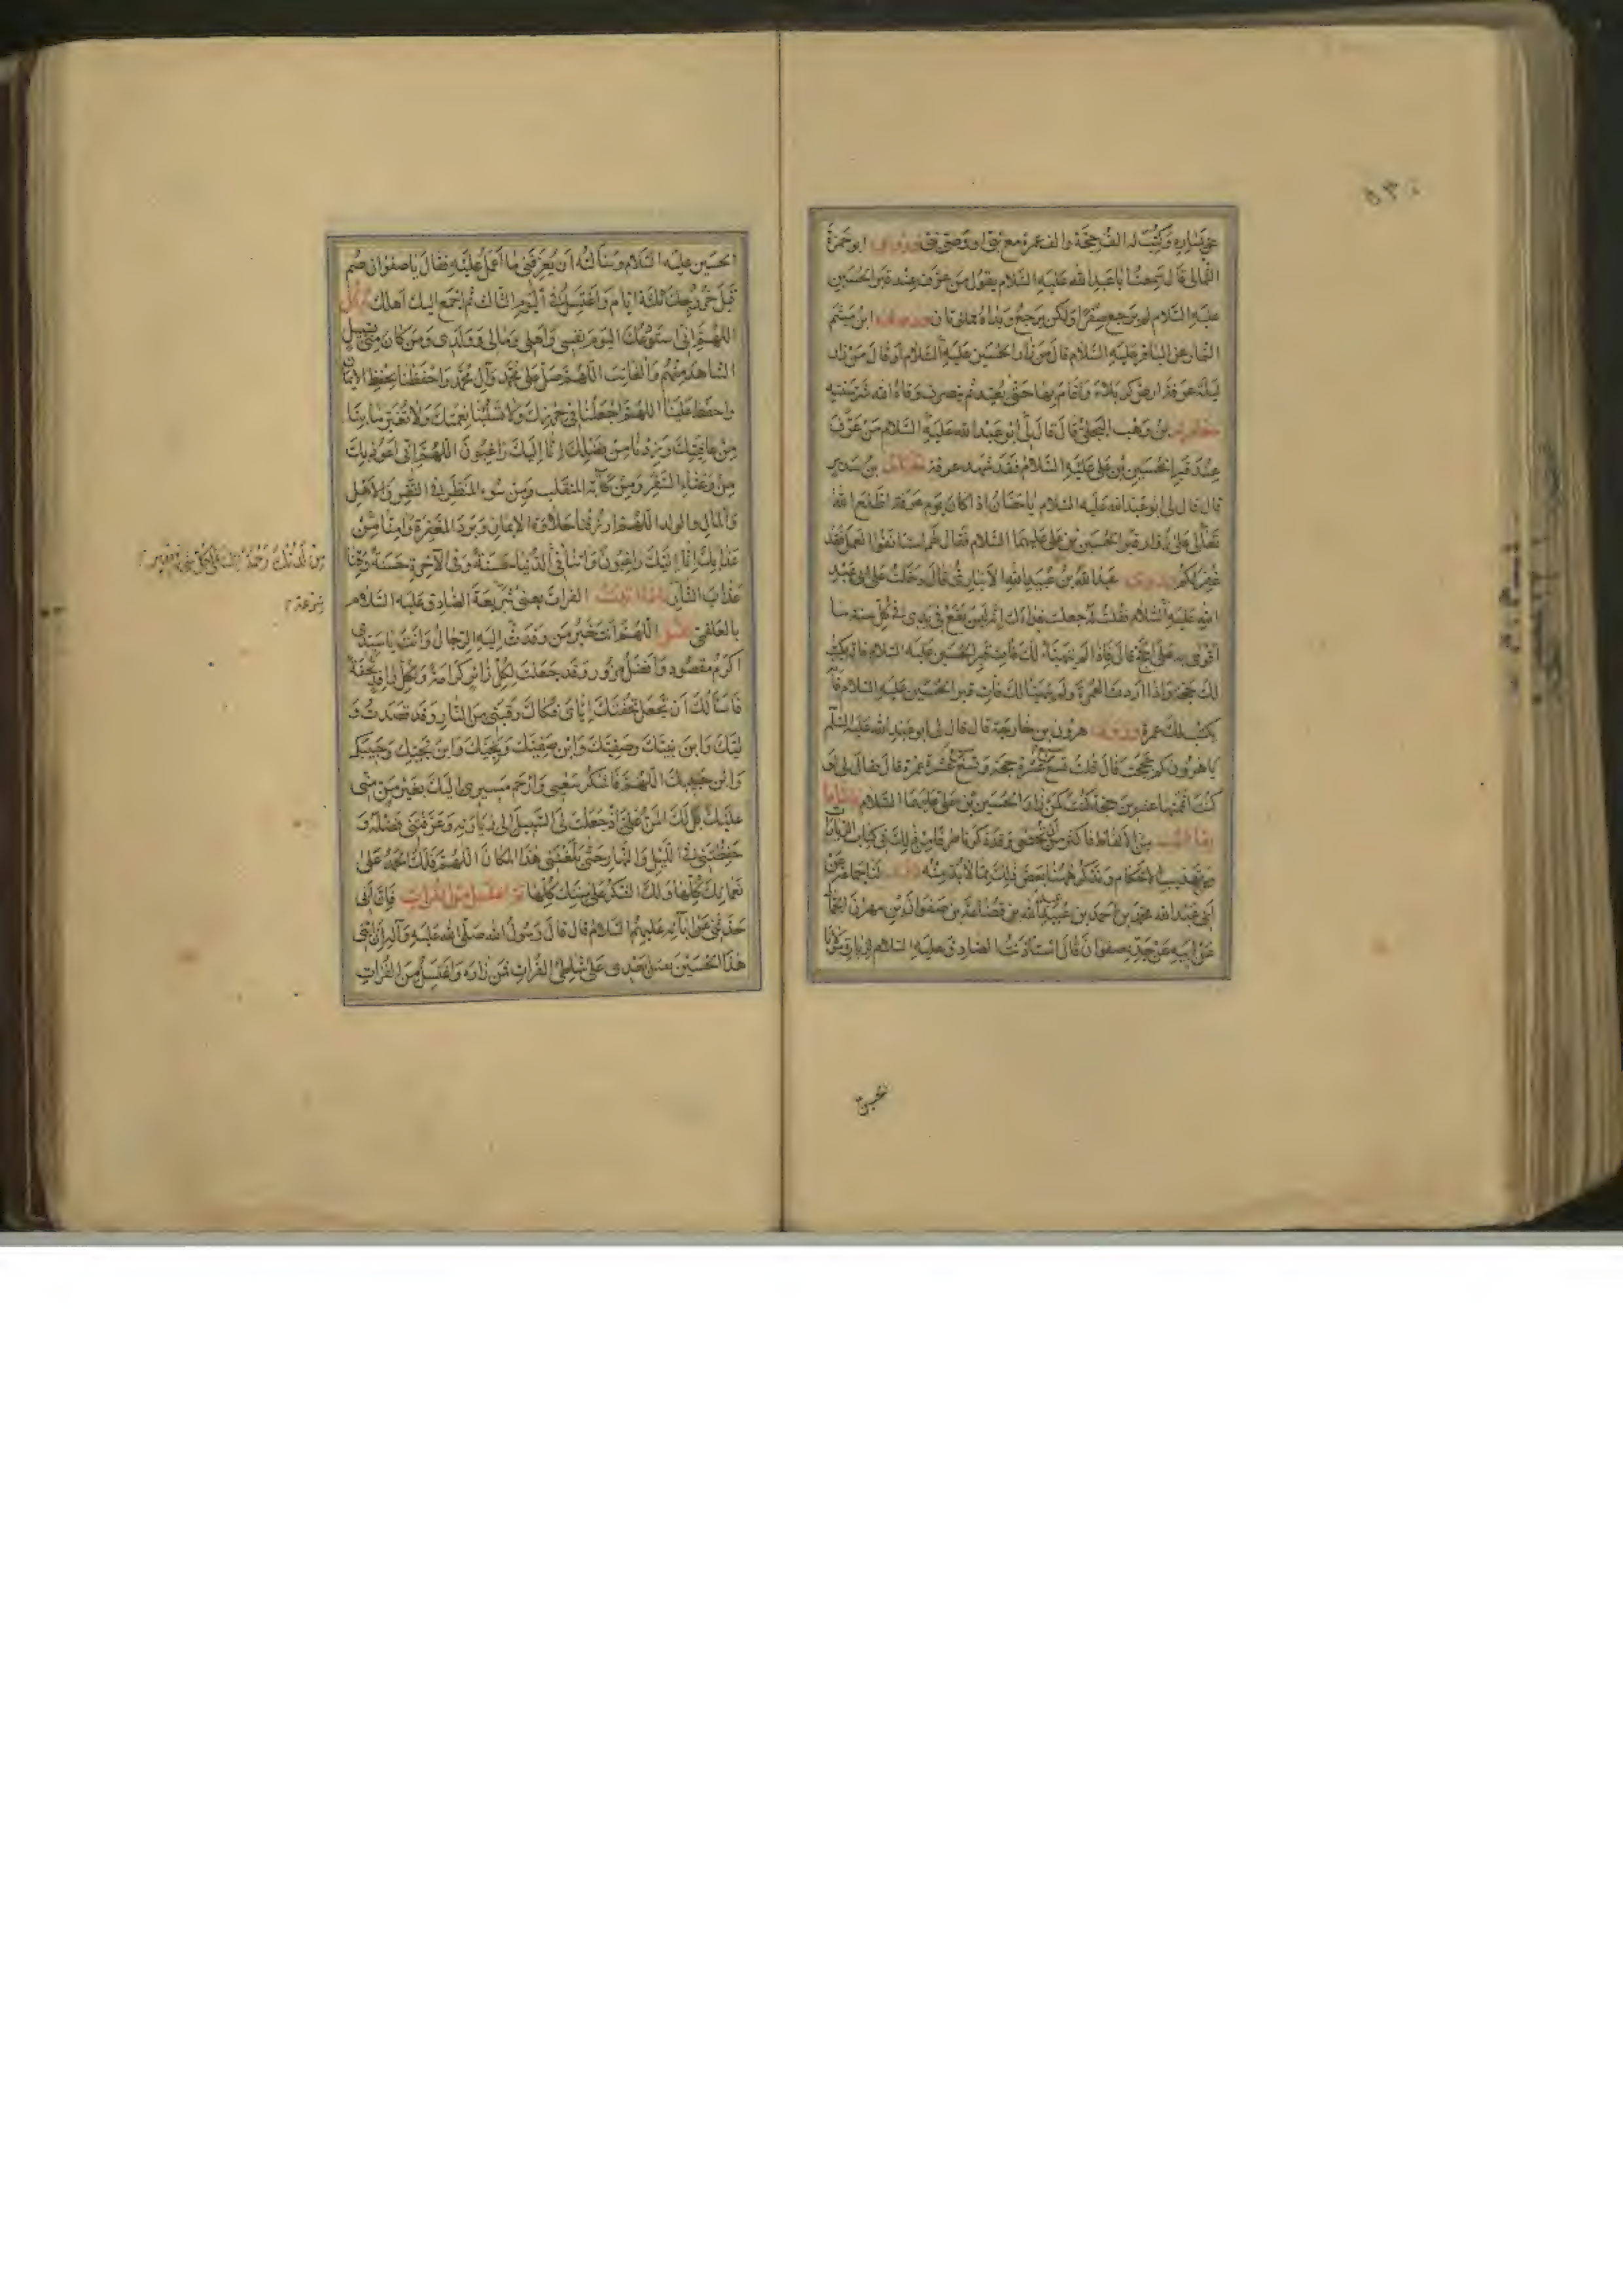 ٥٣٠
على يساره وكتب له الف حجة والف عمرة مع نبي او وصي نبي وروى ابو حمزة
الثمالي قال سمعت ابا عبد الله عليه السلام يقول من عرف عند قبر الحسين
عليه السلام لم يرجع صفرا ولكن يرجع ويداه مملوتان وروى ابن ميثم
التمار عن الباقر عليه السلام قال من زار الحسين عليه السلام او قال من زار
ليلة عرفة ارض كربلاء واقام بها حتى يعيد ثم ينصرف وقاه الله شر سنته
معاوية بن وهب البجلي قال قال لي ابو عبد الله عليه السلام من عرف
عند قبر الحسين بن علي عليه السلام فقد شهد عرفة بن سدير
قال قال لي ابو عبد الله عليه السلام يا حنان اذا كان يوم عرفة اطلع الله
تعالى على زوار قبر الحسين بن علي عليهما السلام فقال لهم استانفوا العمل فقد
غفر لكم وروى عبد الله بن عبيد الله الانباري قال دخلت على ابي عبد
الله عليه السلام فقلت له جعلت فداك انه ليس يقع في يدي في كل سنة ما
اقوى به على الحج قال فاذا لم يتهيا لك فات قبر الحسين عليه السلام فانه يكتب
لك حجة واذا اردت العمرة ولم يتهيا لك فات قبر الحسين عليه السلام فانه
يكتب لك عمرة وروى هرون بن خارجة قال قال لي ابو عبد الله عليه السلم
يا هرون كم حججت قال قلت تسع عشرة حجة وتسع عشرة عمرة قال فقال لي لو
كنت اتممتها عشرين حجة كنت كمن زار الحسين بن علي عليهما السلام فاما
من الالفاظ فاكثر من ان تحصى وقد ذكرنا طرفا من ذلك في كتاب الزيارات
من تهذيب الاحكام ونذكر ههنا بعض ذلك مما لا بد منه لنا جماعة عن
ابي عبد الله محمد بن احمد بن عبد الله بن قضاعة بن صفوان بن مهران الجمال
عن ابيه عن جده صفوان قال استاذنت الصادق عليه السلام لزيارة مولانا
الحسين عليه السلام وسالته ان يعرفني ما اعمل عليه فقال يا صفوان صم
قبل خروجك ثلثة ايام واغتسل في اليوم الثالث ثم اجمع اليك اهلك ثم قل
اللهم اني استودعك اليوم نفسي واهلي ومالي وولدي ومن كان مني بسبيل
الشاهد منهم والغائب اللهم صل على محمد وآل محمد واحفظنا بحفظ الايمان
واحفظ علينا اللهم اجعلنا في حرزك ولا تسلبنا نعمتك ولا تغير ما بنا
من عافيتك وزدنا من فضلك انا اليك راغبون اللهم اني اعوذ بك
من وعثاء السفر ومن كآبة المنقلب ومن سوء المنظر في النفس والاهل
والمال والولد اللهم ارزقنا حلاوة الايمان وبرد المغفرة وامنا من
عذابك انا اليك راغبون واتنا في الدنيا حسنة وفي الآخرة حسنة وقنا
عذاب النار فاذا اتيت الفرات يعني شريعة الصادق عليه السلام
بالعلقمي فقل اللهم انت خير من وفدت اليه الرجال وانت يا سيدي
اكرم مقصود وافضل مزور وقد جعلت لكل زائر كرامة ولكل وافد تحفة
فاسالك ان تجعل تحفتك اياي فكاك رقبتي من النار وقد قصدت و
ليك وابن نبيك وصفيك وابن صفيك ونجيك وابن نجيك وحبيبك
وابن حبيبك اللهم فاشكر سعيي وارحم مسيري اليك بغير من مني
عليك بل لك المن علي اذ جعلت لي السبيل الى زيارته وعرفتني فضله و
حفظتني في الليل والنهار حتى بلغتني هذا المكان اللهم فلك الحمد على
نعمائك كلها ولك الشكر على مننك كلها ثم اغتسل من الفرات فان ابي
حدثني عن آبائه عليهم السلام قال قال رسول الله صلى الله عليه وآله ان ابني
هذا الحسين يقتل بعدي على شاطئ الفرات فمن زاره واغتسل من الفرات
من لدنك رحمة انك على كل شئ قدير